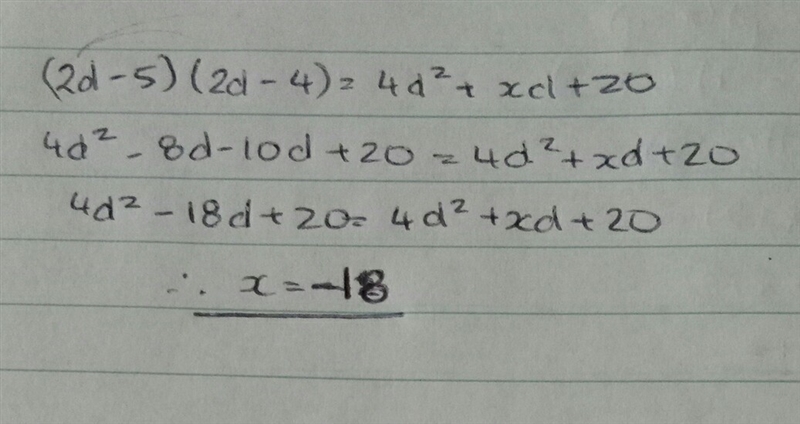 (2d-5)(2d-4)= 4d²+ xd+20
4d² - 8d-10d+20 = 4d²+xd+20
4d² -18d+20= 4d²+xd+20
∴ x=-18